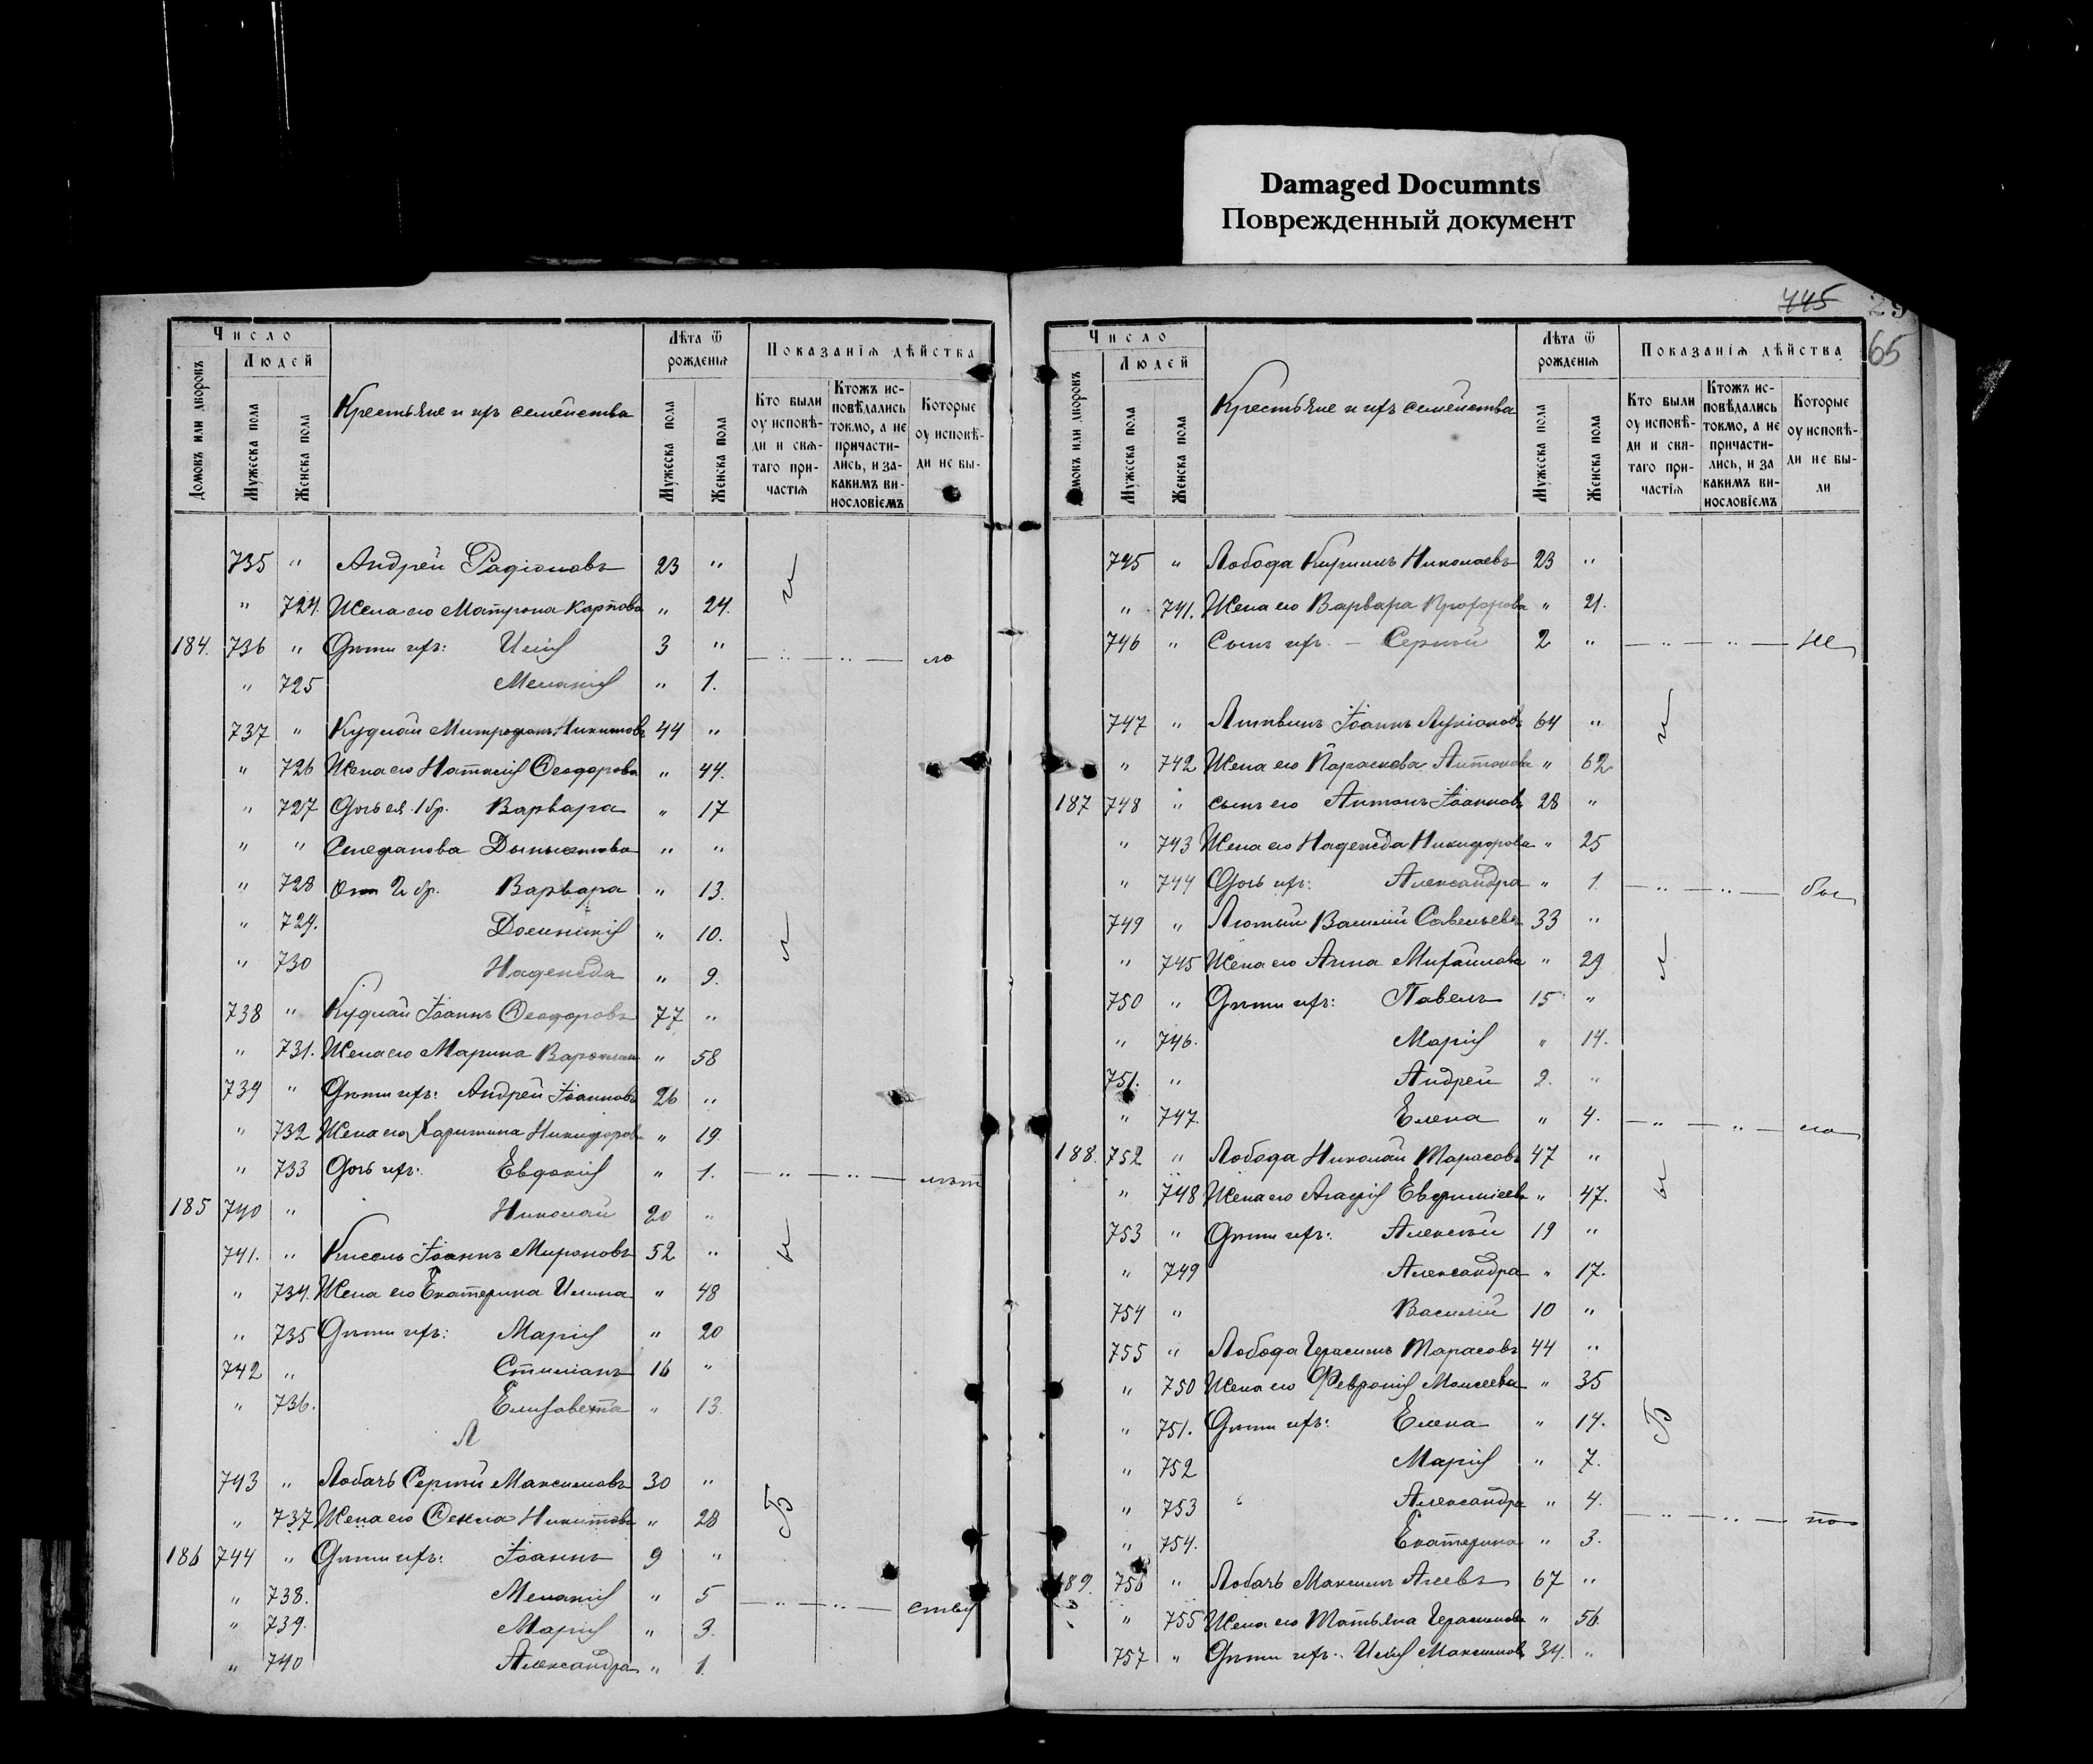 Damaged Documnts
Поврежденный документ
Число
Людей
Домовъ или дворовъ
Мужеска пола
Женска пола
Крестьяне и ихъ семейства
Лѣта ѿ рожденія
Мужеска пола
Женска пола
Показанія дѣйства
Кто были оу исповѣ-
ди и свя-
таго при-
частія
Ктожъ ис-
повѣдались
токмо, а не
причасти-
лись, и за-
какимъ ви-
нословіемъ
Которые
оу исповѣ-
ди не вы-
735 " Андрей Радіоновъ 23 "
" 724. Жена его Матрона Карпова " 24.
184. 736 " Дѣти ихъ: Илія 3 "
" 725 Меланія " 1.
737 " Кудлай Митрофанъ Никитовъ 44 "
" 726 Жена его Наталія Ѳеодорова " 44.
" 727 Дочь ея 1 бр. Варвара " 17
" " Стефанова " "
" 728 От 2 бр. Варвара " 13.
" 729. Домникія " 10.
" 730 Надежда " 9.
738 " Кудлай Іоаннъ Ѳеодоровъ 77 "
" 731. Жена его Марина " 58
739 " Дѣти ихъ: Андрей Іоанновъ 26 "
" 732 Жена его Харитина Никифоров " 19.
" 733 Дочь ихъ: Евдокія " 1.
185 740 " Николай 20 "
741. " Кисель Іоаннъ Мироновъ 52 "
" 734. Жена его Екатерина Илина " 48
" 735 Дѣти ихъ: Марія " 20
742 " Стиліанъ 16 "
" 736. Елизавета " 13
Л
743 " Лобачъ Сергій Максимовъ 30 "
" 737 Жена его Ѳекла Никитова " 28
186 744 " Дѣти ихъ: Іоаннъ 9 "
" 738. Меланія " 5
" 739. Марія " 3.
" 740 Александра " 1.
445
65
Число
Людей
Мужеска пола
Женска пола
Крестьяне и ихъ семейства
Лѣта ѿ рожденія
Мужеска пола
Женска пола
Показанія дѣйства
Кто были
оу исповѣ-
ди и свя-
таго при-
частія
Ктожъ ис-
повѣдались
токмо, а не
причасти-
лись, и за
какимъ ви-
нословіемъ
Которые
оу исповѣ-
ди не вы-
ли
745 " Лобода Кириллъ Николаевъ 23 "
" 741. Жена его Варвара Прохорова " 21.
746 " Сынъ ихъ - Сергій 2 " не
747 " Литвинъ Іоаннъ Лукіановъ 64 "
" 742 Жена его Параскева Антонова " 62
187 748 " сынъ его Антонъ Іоанновъ 28 "
" 743 Жена его Надежда Никифорова " 25
" 744 Дочь ихъ: Александра " 1. бы
749 " Лютый Василій Савельевъ 33 "
" 745 Жена его Анна Михайлова " 29
750 " Дѣти ихъ: Павелъ 15 "
" 746. Марія " 14.
751. " Андрей 2. "
" 747. Елена " 4. ло
188. 752 " Лобода Николай Тарасовъ 47 "
" 748 Жена его Агафія Евфиміева " 47.
753 " Дѣти ихъ: Алексѣй 19 "
" 749 Александра " 17.
754 " Василій 10 "
755 " Лобода Герасимъ Тарасовъ 44 "
" 750 Жена его Февронія Моисеева " 35
" 751. Дѣти ихъ: Елена " 14.
" 752 Марія " 7.
" 753 Александра " 4. по
" 754. Екатерина " 3.
189. 756 " Лобачъ Максимъ " 67 "
" 755 Жена его Татьяна Герасимова " 56.
757 " Дѣти ихъ: Илія Максимов 34. "